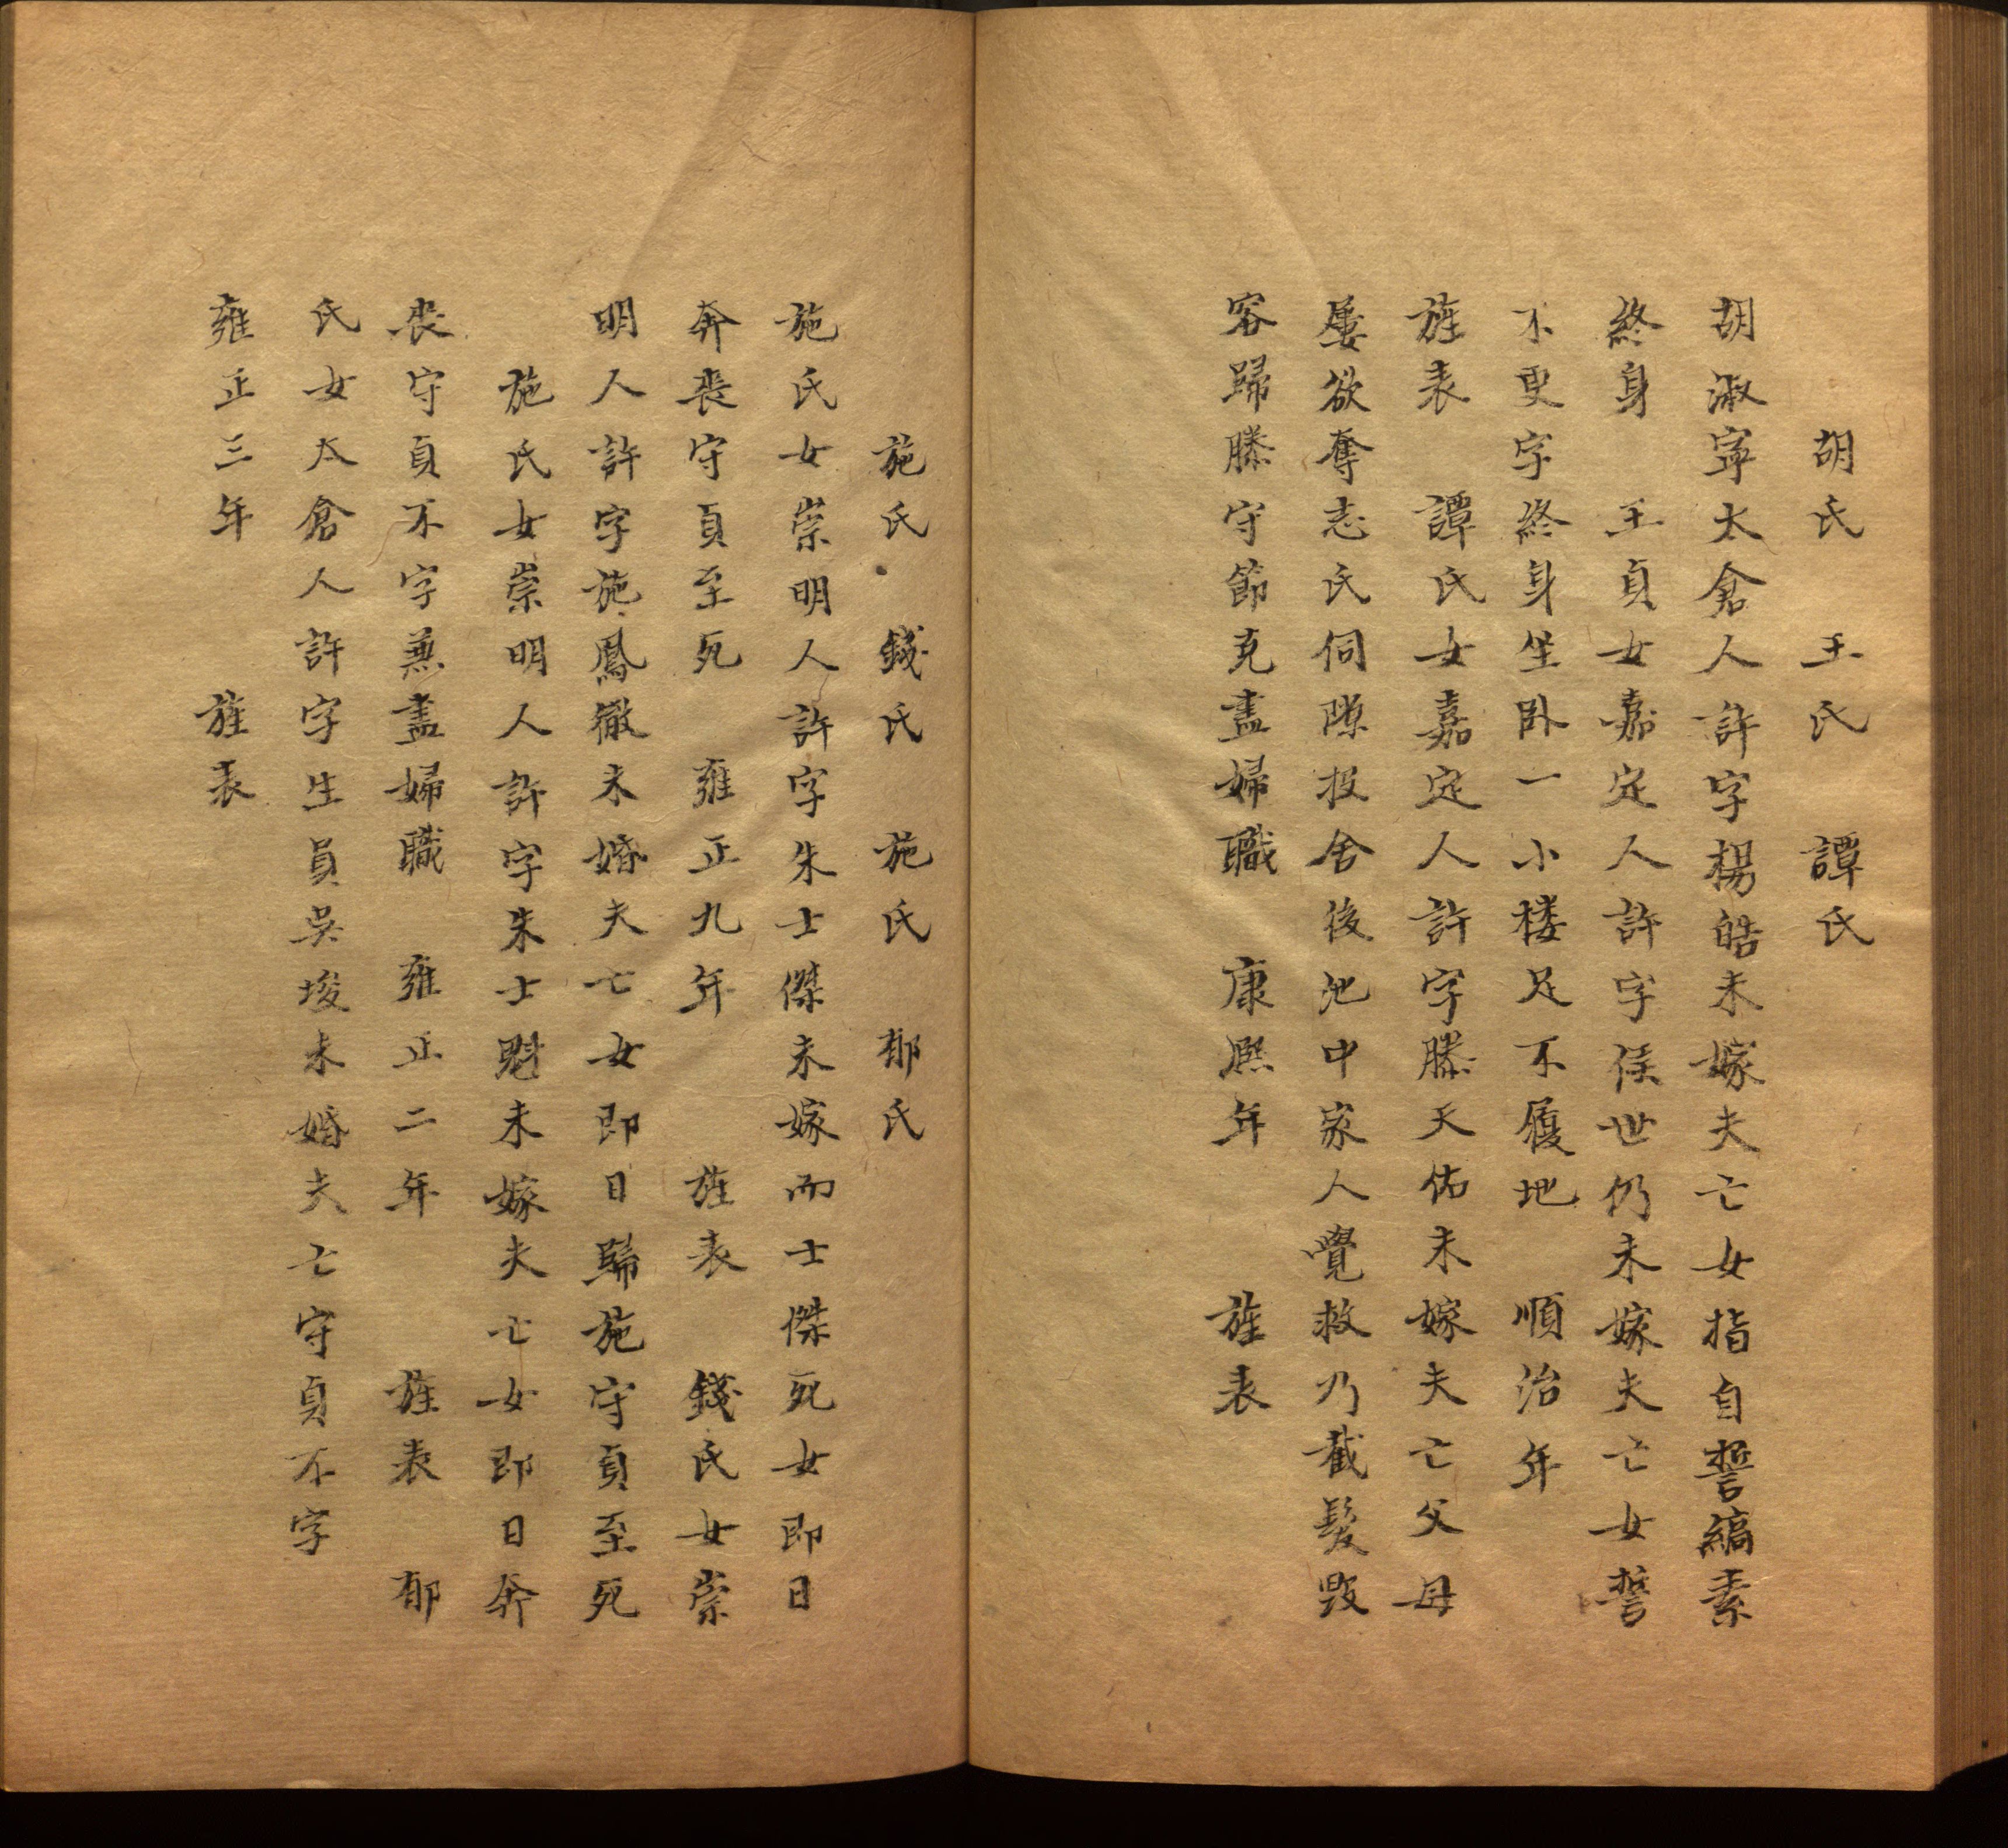 胡氏　王氏　譚氏
胡淑寧太倉人許字楊皓未嫁夫亡女指自誓縞素
終身　王貞女嘉定人許字侯世仍未嫁夫亡女誓
不更字終身坐卧一小楼足不履地　順治年
旌表　譚氏女嘉定人許字滕天佑未嫁夫亡父母
屡欲奪志氏伺隙投舍後池中家人覺救乃截髮毀
容歸滕守節克盡婦職　康熙年　旌表
施氏　錢氏　施氏　郁氏
施氏女崇明人許字朱士傑未嫁而士傑死女即日
奔喪守貞至死　雍正九年　旌表　錢氏女崇
明人許字施鳳徹未婚夫亡女即日歸施守貞至死
施氏女崇明人許字朱士魁未嫁夫亡女即日奔
喪守貞不字兼盡婦職　雍正二年　旌表　郁
氏女太倉人許字生員吳堎未婚夫亡守貞不字
雍正三年　旌表